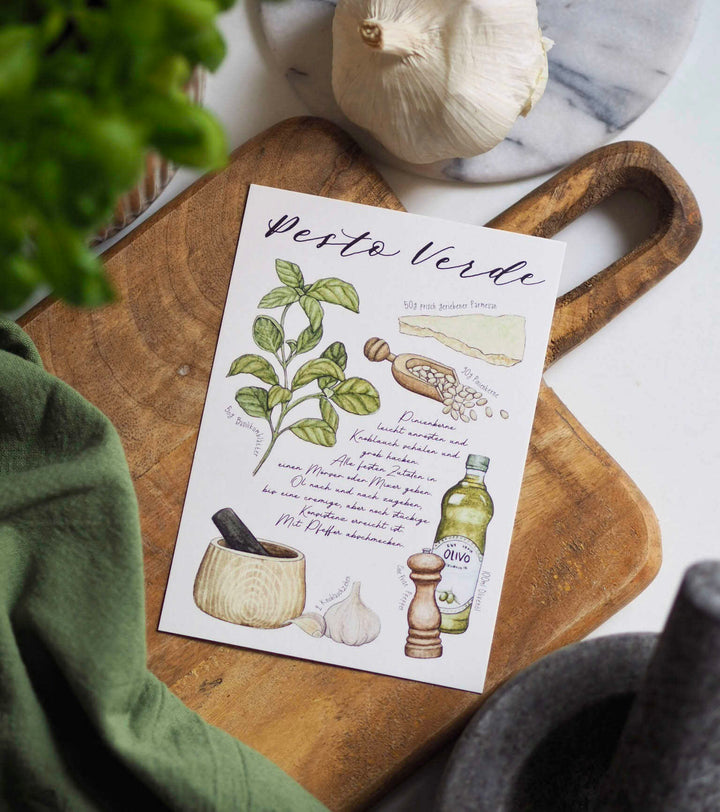 Pesto Verde
50g frisch geriebener Parmesan
30g Pinienkerne
50g Basilikumblätter
Pinienkerne
leicht anrösten und
Knoblauch schälen und
grob hacken.
Alle festen Zutaten in
einen Mörser oder Mixer geben.
Öl nach und nach zugeben,
bis eine cremige, aber noch stückige
Konsistenz erreicht ist.
Mit Pfeffer abschmecken.
OLIVO
100ml Olivenöl
1 Knoblauchzehe
Pfeffer